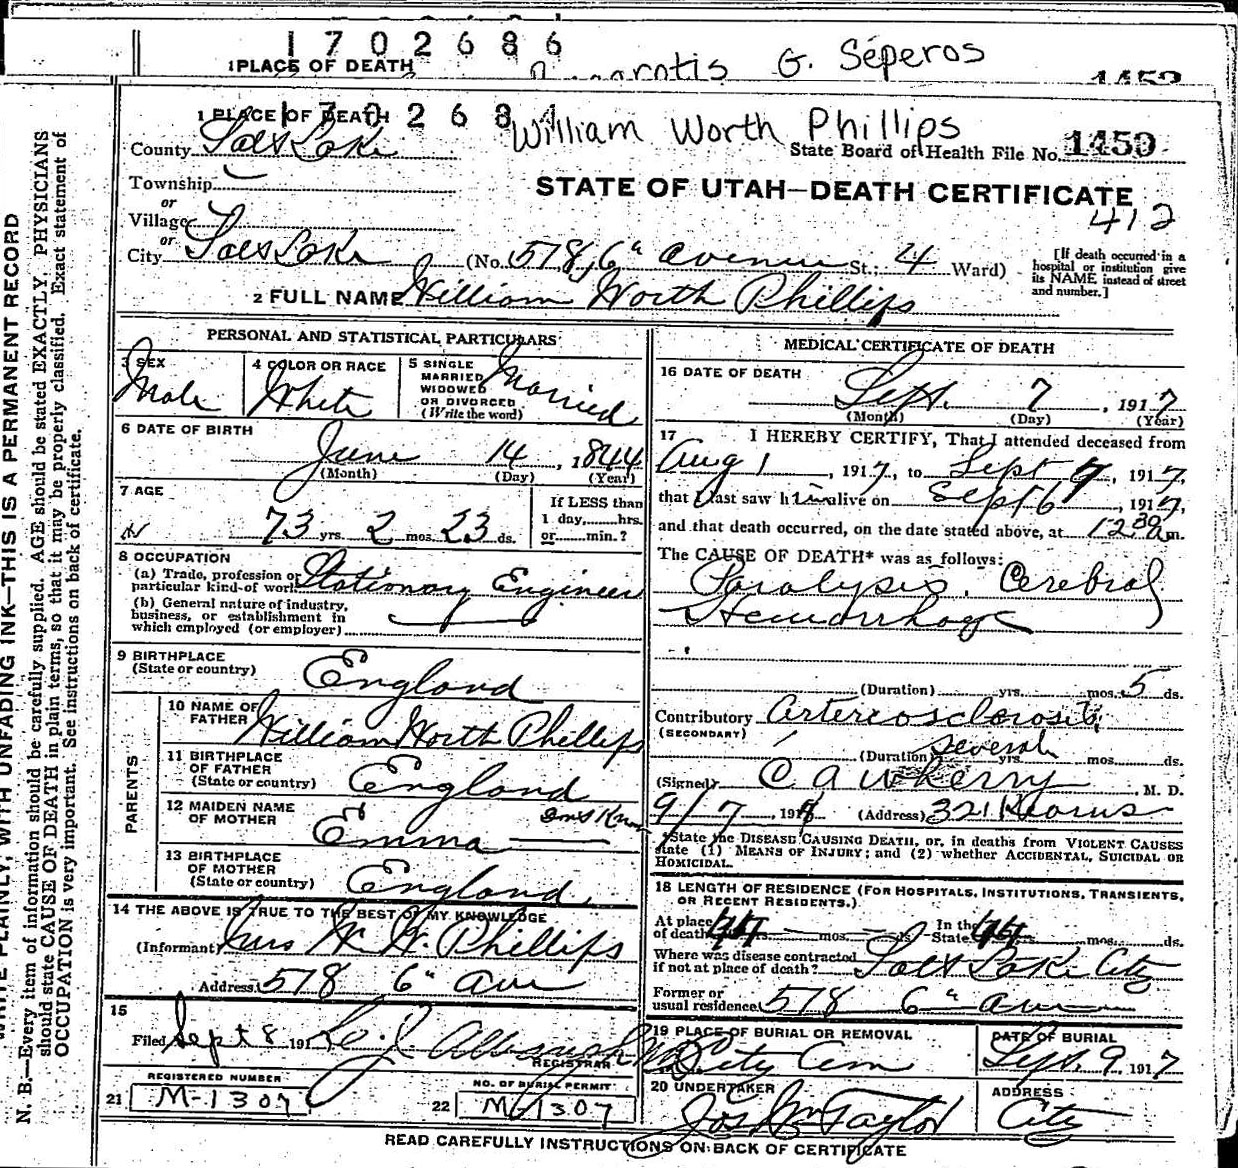 1702686
1 PLACE OF DEATH
G. Séperos
1 PLACE OF DEATH
170268
William Worth Phillips
County Salt Lake
State Board of Health File No. 1459
Township
STATE OF UTAH—DEATH CERTIFICATE
or
Village
412
or
City Salt Lake (No. 578, 6" avenue St.; 4 Ward)
[If death occurred in a
hospital or institution give
its NAME instead of street
and number.]
2 FULL NAME William Worth Phillips
PERSONAL AND STATISTICAL PARTICULARS
3 SEX
Male
4 COLOR OR RACE
White
5 SINGLE
MARRIED
WIDOWED
OR DIVORCED
(Write the word)
Married
6 DATE OF BIRTH
June 14, 1844
(Month) (Day) (Year)
7 AGE
73 yrs. 2 mos. 23 ds.
If LESS than
1 day, hrs.
or min.?
8 OCCUPATION
(a) Trade, profession or
particular kind of work Stationary Engineer
(b) General nature of industry,
business, or establishment in
which employed (or employer)
9 BIRTHPLACE
(State or country) England
PARENTS
10 NAME OF
FATHER William Worth Phillips
11 BIRTHPLACE
OF FATHER
(State or country) England
12 MAIDEN NAME
OF MOTHER Emma
13 BIRTHPLACE
OF MOTHER
(State or country) England
14 THE ABOVE IS TRUE TO THE BEST OF MY KNOWLEDGE
(Informant) Mrs W. W. Phillips
Address 578 6" Ave
15
Filed Sept 8 191
REGISTRAR
REGISTERED NUMBER
21 M-1307
NO. OF BURIAL PERMIT
22 M-1307
MEDICAL CERTIFICATE OF DEATH
16 DATE OF DEATH
Sept. 7, 1917
(Month) (Day) (Year)
17 I HEREBY CERTIFY, That I attended deceased from
Aug 1, 1917, to Sept 7, 1917,
that I last saw him alive on Sept 6, 1917,
and that death occurred, on the date stated above, at 12 30 a m.
The CAUSE OF DEATH* was as follows:
Paralysis. Cerebral
Hemorrhage
(Duration) yrs. mos. 5 ds.
Contributory Arteriosclerosis
(SECONDARY)
(Duration) several yrs. mos. ds.
(Signed) C A Wherry, M. D.
9/7 191 (Address) 321 Kearns
*State the DISEASE CAUSING DEATH, or, in deaths from VIOLENT CAUSES
state (1) MEANS OF INJURY; and (2) whether ACCIDENTAL, SUICIDAL OR
HOMICIDAL.
18 LENGTH OF RESIDENCE (FOR HOSPITALS, INSTITUTIONS, TRANSIENTS,
OR RECENT RESIDENTS.)
At place
of death yrs. mos. ds.
In the
State mos. ds.
Where was disease contracted
if not at place of death? Salt Lake City
Former or
usual residence 578 6" ave
19 PLACE OF BURIAL OR REMOVAL
City Cem
DATE OF BURIAL
Sept. 9 1917
20 UNDERTAKER
Jos Wm Taylor
ADDRESS
City
READ CAREFULLY INSTRUCTIONS ON BACK OF CERTIFICATE
WRITE PLAINLY, WITH UNFADING INK—THIS IS A PERMANENT RECORD
N. B.—Every item of information should be carefully supplied. AGE should be stated EXACTLY. PHYSICIANS
should state CAUSE OF DEATH in plain terms, so that it may be properly classified. Exact statement of
OCCUPATION is very important. See instructions on back of certificate.